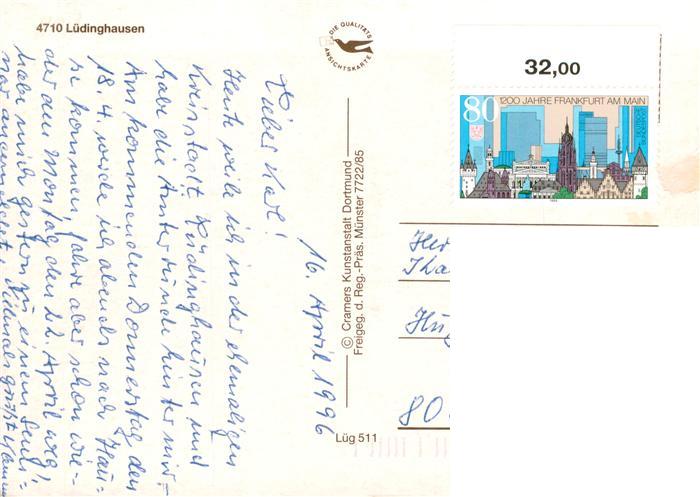 4710 Lüdinghausen
DIE QUALITÄTS
ANSICHTSKARTE
32,00
80
1200 JAHRE FRANKFURT AM MAIN
DEUTSCHE BUNDESPOST
16. April 1996
Lieber Karl!
Heute weile ich in der ehemaligen
Kreisstadt Lüdinghausen und
habe die Amtsrunde hinter mir.
Am kommenden Donnerstag den
18.4. werde ich abends nach Hau-
se kommen, fahre aber schon wie-
der am Montag, den 22. April weg!
habe mich gestern zu einem
© Cramers Kunstanstalt Dortmund
Freigeg. d. Reg.-Präs. Münster 7722/85
Lüg 511
Her
80